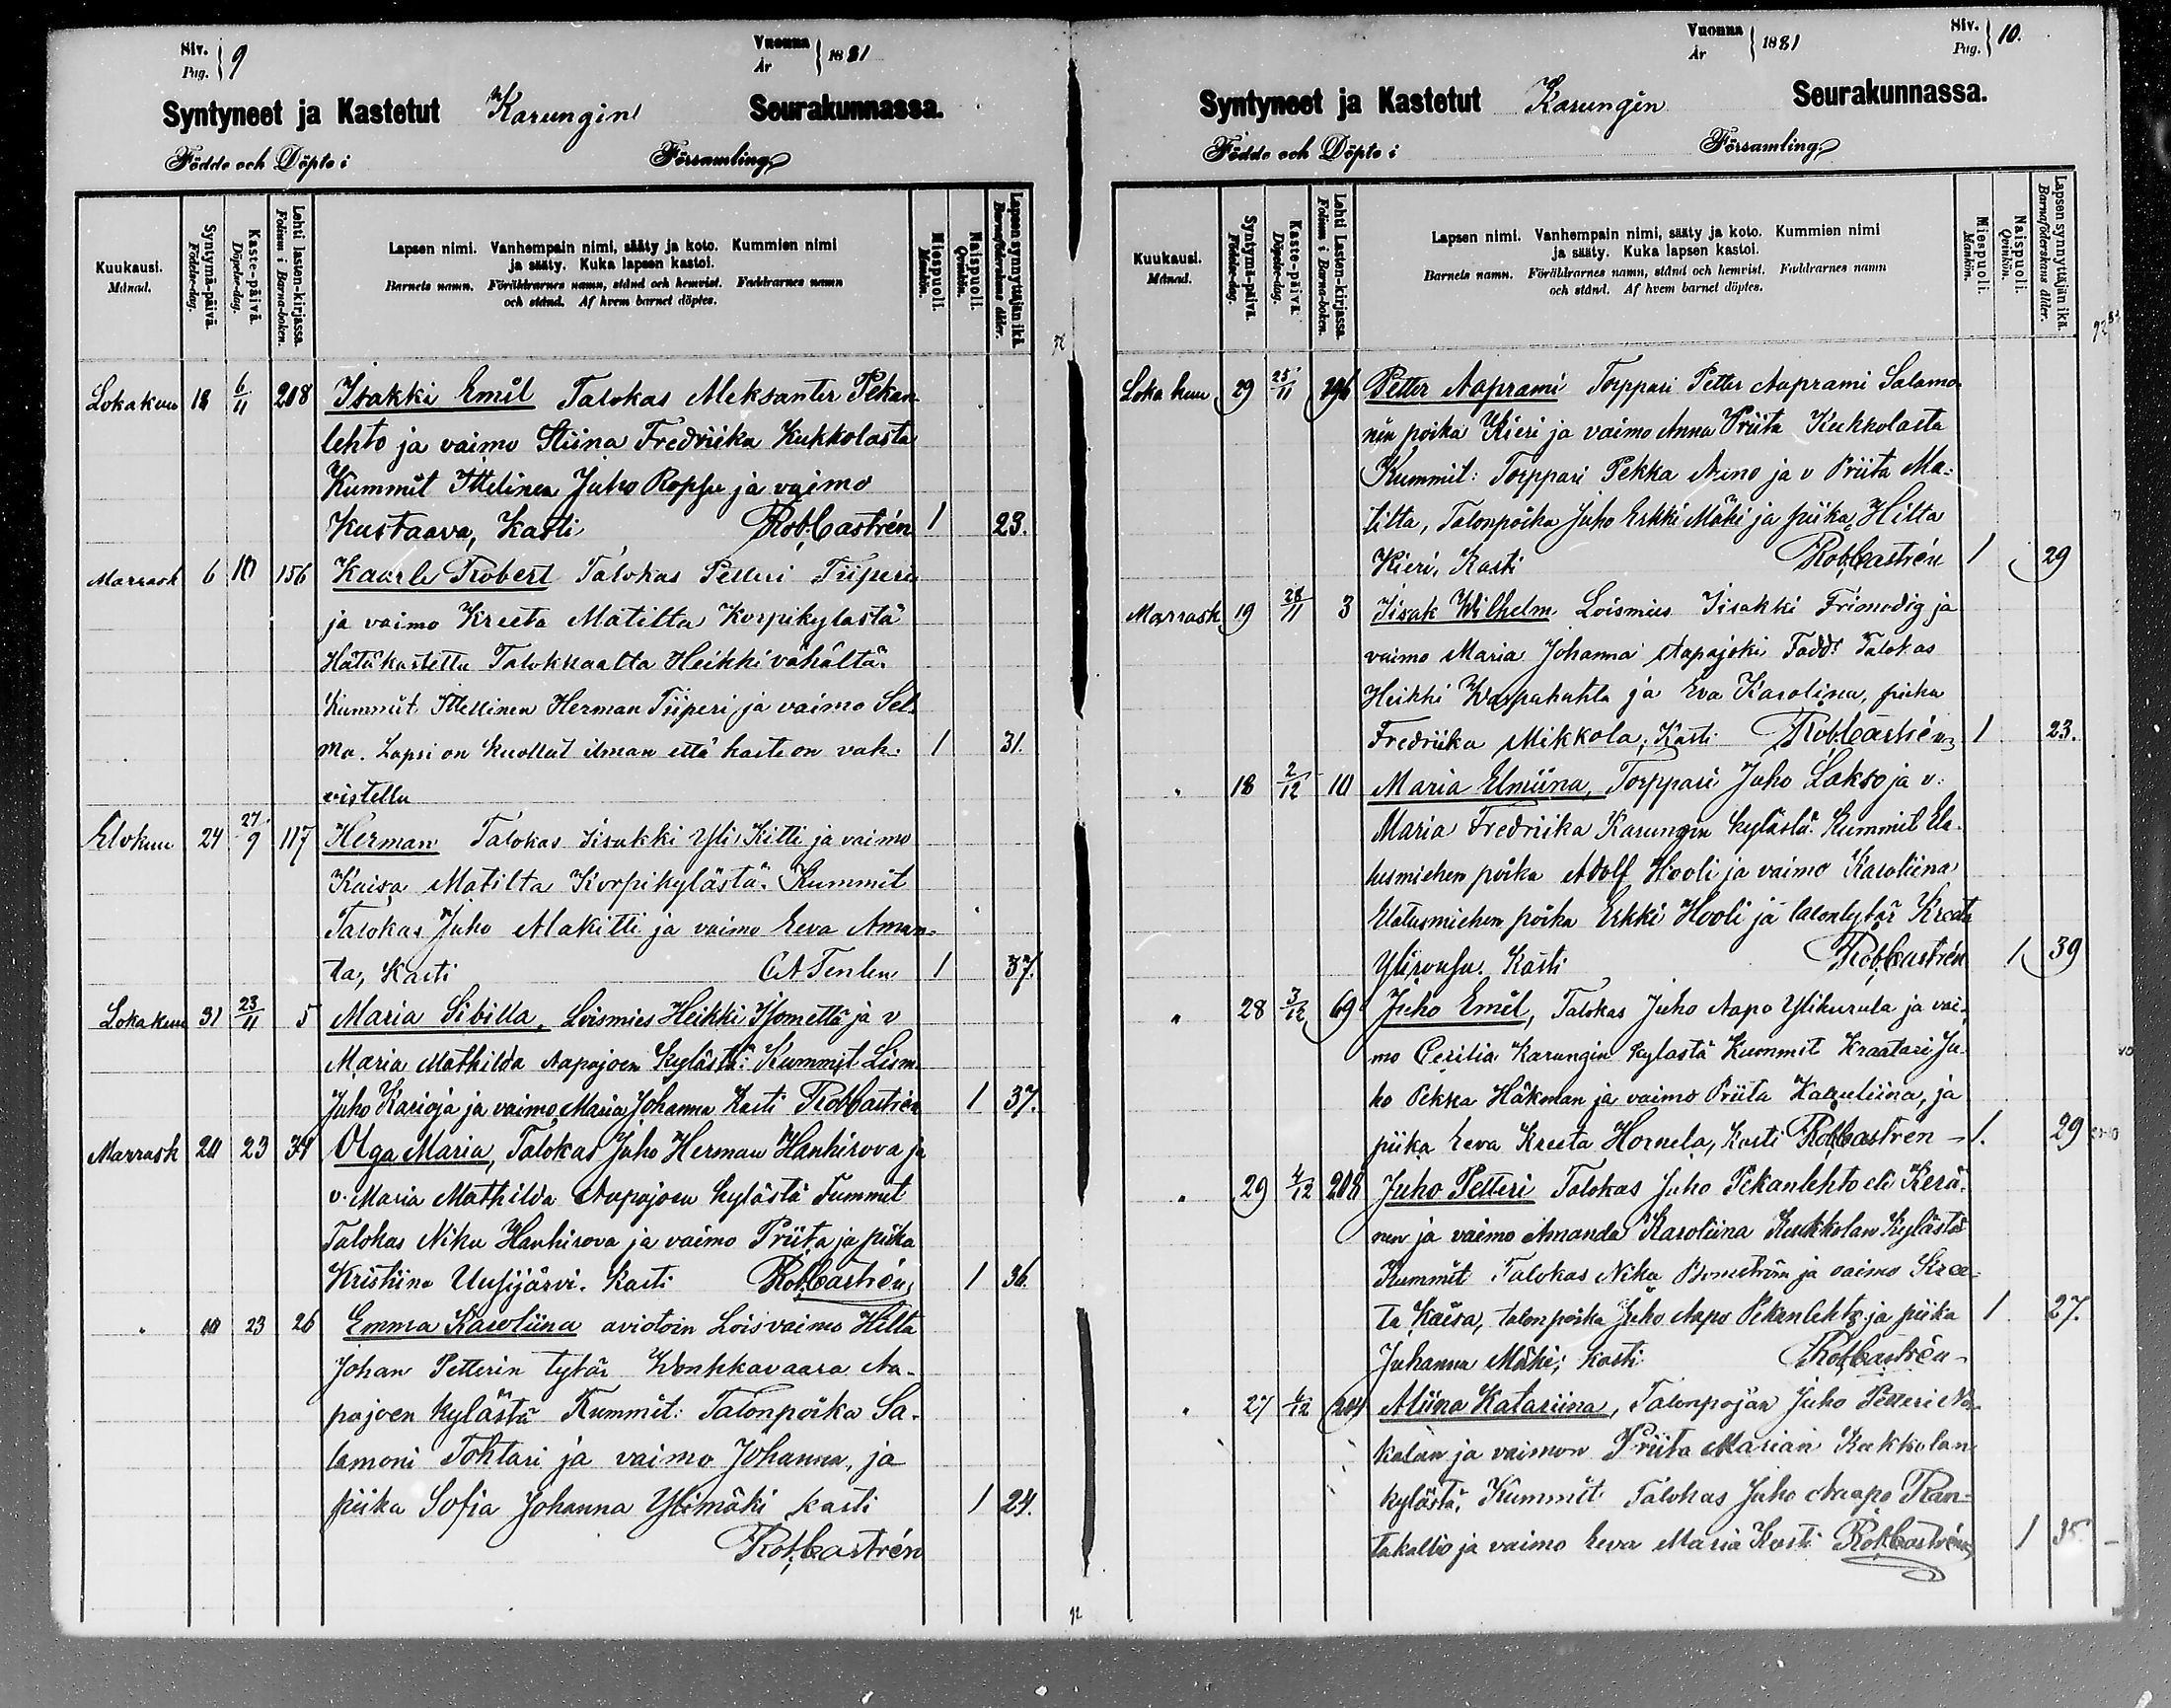 Siv.
Pag. 9
Vuonna
År 1881
Syntyneet ja Kastetut Karungin Seurakunnassa.
Födde och Döpte i Församling
Kuukausi.
Månad.
Syntymä-päivä.
Födelse-dag.
Kaste-päivä.
Döpelse-dag.
Lehti lasten-kirjassa.
Folium i Barna-boken.
Lapsen nimi. Vanhempain nimi, sääty ja koto. Kummien nimi
ja sääty. Kuka lapsen kastoi.
Barnets namn. Föräldrarnes namn, stånd och hemvist. Faddrarnes namn
och stånd. Af hvem barnet döptes.
Miespuoli.
Mankön.
Naispuoli.
Qvinkön.
Lapsen synnyttäjän ikä.
Barnaföderskans ålder.
Lokakuu 18 6/11 208 Isakki Emil Talokas Aleksanter Pekan-
lehto ja vaimo Stiina Fredriika Kukkolasta
Kummit Ittelinen Juho Ropsu ja vaimo
Kustaava, Kasti Rob. Castrén 1 23.
Marrask 6 10 156 Kaarle Robert Talokas Petteri Tiiperi
ja vaimo Kreeta Matilta Korpikylästä
Hätäkastettu Talokkaalta Heikki vähältä.
Kummit Ittellinen Herman Tiiperi ja vaimo Sel-
ma. Lapsi on kuollut ilman että kaste on vah- 1 31.
vistettu
Elokuu 24 27/9 117 Herman Talokas Iisakki Yli Kitti ja vaimo
Kaisa Matilta Korpikylästä. Kummit
Talokas Juho Alakitti ja vaimo Eeva Aman-
ta, Kasti 1 37.
Lokakuu 31 23/11 5 Maria Sibilla, Loismies Heikki Isometsä ja v
Maria Mathilda Aapajoen kylästä: Kummit Lism.
Juho Karioja ja vaimo Maria Johanna Kasti Rob Castrén 1 37.
Marrask 20 23 34 Olga Maria, Talokas Juho Herman Hanhirova ja
v. Maria Mathilda Aapajoen kylästä Kummit
Talokas Niku Hanhirova ja vaimo Priita ja piika
Kristiina Uusijärvi. Kasti Rob. Castrén 1 36.
" 10 23 26 Emma Karoliina aviotoin Loisvaimo Hilta
Johan Petterin tytär Wonkkavaara Aa-
pajoen kylästä Kummit: Talonpoika Sa-
lamoni Tohtari ja vaimo Johanna, ja
piika Sofia Johanna Ylimäki kasti 1 24.
Rob. Castrén
Vuonna
År 1881
Siv.
Pag. 10.
Syntyneet ja Kastetut Karungin Seurakunnassa.
Födde och Döpte i Församling
Kuukausi.
Månad.
Syntymä-päivä.
Födelse-dag.
Kaste-päivä.
Döpelse-dag.
Lehti lasten-kirjassa.
Folium i Barna-boken.
Lapsen nimi. Vanhempain nimi, sääty ja koto. Kummien nimi
ja sääty. Kuka lapsen kastoi.
Barnets namn. Föräldrarnes namn, stånd och hemvist. Faddrarnes namn
och stånd. Af hvem barnet döptes.
Miespuoli.
Mankön.
Naispuoli.
Qvinkön.
Lapsen synnyttäjän ikä.
Barnaföderskans ålder.
Loka kuu 29 25/11 Petter Aaprami Torppari Petter Aaprami Salamo-
nin poika Kieri ja vaimo Anna Priita Kukkolasta
Kummit: Torppari Pekka Aino ja v Priita Ma-
tilta, Talonpoika Juho Erkki Mäki ja piika Hilta
Kieri, Kasti Rob. Castrén 1 29
Marrask 19 28/11 3 Iisak Wilhelm Loismies Iisakki Frimodig ja
vaimo Maria Johanna Aapajoki Fadd: Talokas
Heikki Warpahuhta ja Eva Karolina, piika
Fredriika Mikkola; Kasti Rob. Castrén 1 23.
" 18 2/12 10 Maria Elmiina, Torppari Juho Lakso ja v.
Maria Fredriika Karungin kylästä. Kummit Ela-
tusmiehen poika Adolf Hooli ja vaimo Karoliina
Elatusmiehen poika Erkki Hooli ja talontytär Kreeta
Kasti Rob. Castrén 1 39
" 28 3/12 69 Juho Emil, Talokas Juho Aapo Ylikurula ja vai-
mo Cecilia Karungin kylästä Kummit Kraatari Ju-
ho Pekka Häkman ja vaimo Priita Karuliina, ja
piika Eeva Kreeta Hornela, Kasti Rob. Castrén 1. 29
" 29 4/12 208 Juho Petteri Talokas Juho Pekanlehto eli Kerä-
nen ja vaimo Amanda Karoliina Kukkolan kylästä
Kummit Talokas Niku ja vaimo Kree-
ta Kaisa, talonpoika Juho Aapo Pekanlehto ja piika 1 27.
Johanna Mäki; kasti Rob. Castrén
" 27 4/12 204 Miina Katariina, Talonpojan Juho Petteri No-
kalan ja vaimon Priita Marian Kukkolan
kylästä, Kummit Talokas Juho Aaapo Ran-
takallio ja vaimo Eeva Maria Kasti Rob. Castrén 1 35